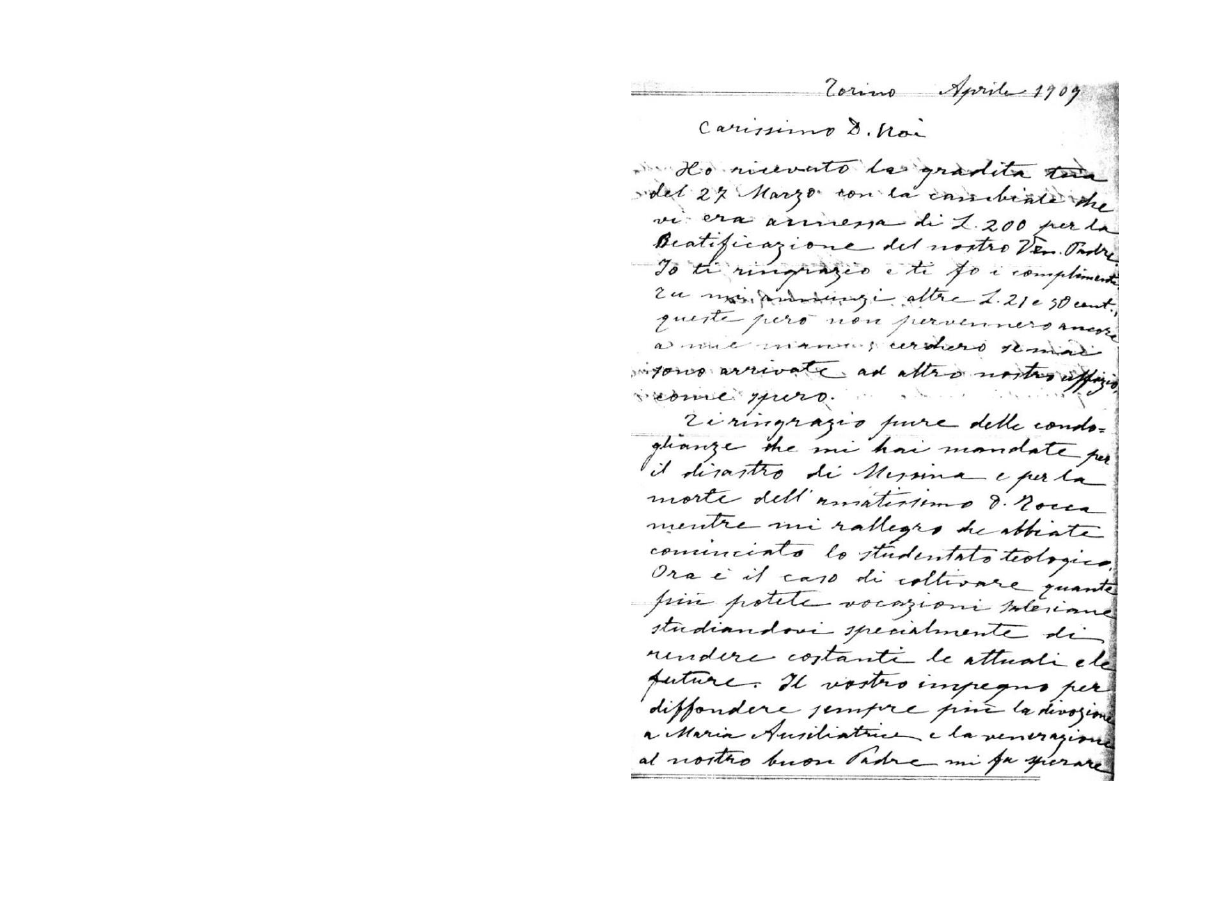 Torino Aprile 1909
Carissimo D. Noè
Ho ricevuto la gradita tua
del 27 Marzo con la cambiale che
vi era annessa di L. 200 per la
Beatificazione del nostro Ven. Padre.
Io ti ringrazio e ti fo i complimenti
Tu mi annunzi altre L. 21 e 50 cent.,
queste però non pervennero ancora
a mie mani; cercherò se mai
sono arrivate ad altro nostro uffizio,
come spero.
Ti ringrazio pure delle condo=
glianze che mi hai mandate per
il disastro di Messina e per la
morte dell'amatissimo D. Rocca
mentre mi rallegro che abbiate
cominciato lo studentato teologico.
Ora è il caso di coltivare quante
più potete vocazioni salesiane
studiandovi specialmente di
rendere costanti le attuali e le
future. Il vostro impegno per
diffondere sempre più la divozione
a Maria Ausiliatrice e la venerazione
al nostro buon Padre mi fa sperare